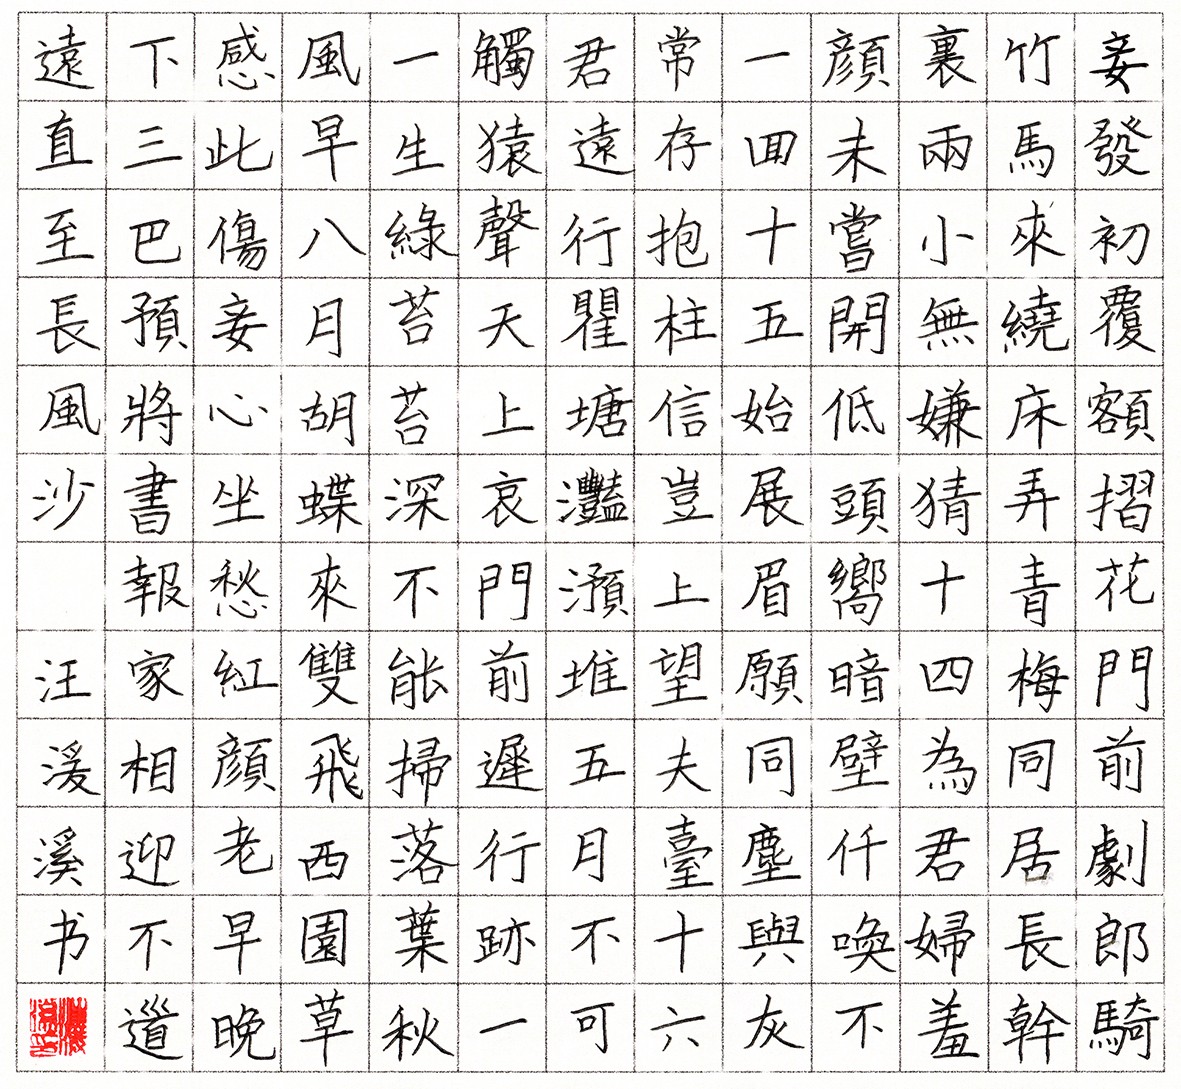 妾發初覆額摺花門前劇郎騎
竹馬來繞床弄青梅同居長幹
裏兩小無嫌猜十四為君婦羞
顏未嘗開低頭嚮暗壁仟喚不
一囬十五始展眉願同塵與灰
常存抱柱信豈上望夫臺十六
君遠行瞿塘灩澦堆五月不可
觸猿聲天上哀門前遲行跡一
一生綠苔苔深不能掃落葉秋
風早八月胡蝶來雙飛西園草
感此傷妾心坐愁紅顏老早晚
下三巴預將書報家相迎不道
遠直至長風沙 汪湲溪书